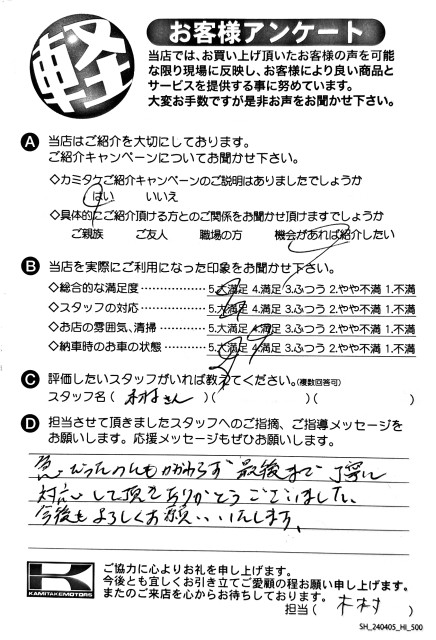 軽
お客様アンケート
当店では、お買い上げ頂いたお客様の声を可能
な限り現場に反映し、お客様により良い商品と
サービスを提供する事に努めています。
大変お手数ですが是非お声をお聞かせ下さい。
A 当店はご紹介を大切にしております。
ご紹介キャンペーンについてお聞かせ下さい。
◇カミタケご紹介キャンペーンのご説明はありましたでしょうか
はい いいえ
◇具体的にご紹介頂ける方とのご関係をお聞かせ頂けますでしょうか
ご親族 ご友人 職場の方 機会があれば紹介したい
B 当店を実際にご利用になった印象をお聞かせ下さい。
◇総合的な満足度 ··············· 5.大満足 4.満足 3.ふつう 2.やや不満 1.不満
◇スタッフの対応 ··············· 5.大満足 4.満足 3.ふつう 2.やや不満 1.不満
◇お店の雰囲気、清掃 ·········· 5.大満足 4.満足 3.ふつう 2.やや不満 1.不満
◇納車時のお車の状態 ·········· 5.大満足 4.満足 3.ふつう 2.やや不満 1.不満
C 評価したいスタッフがいれば教えてください。(複数回答可)
スタッフ名 ( 木村さん )( )( )
D 担当させて頂きましたスタッフへのご指摘、ご指導メッセージを
お願いします。応援メッセージもぜひお願いします。
急だったのにもかかわらず 最後まで 丁寧に
対応して頂きありがとうございました。
今後もよろしくお願いいたします。
K
KAMITAKEMOTORS
ご協力に心よりお礼を申し上げます。
今後とも宜しくお引き立てご愛顧の程お願い申し上げます。
またのご来店を心からお待ちしております。
担当 ( 木村 )
SH_240405_HI_500